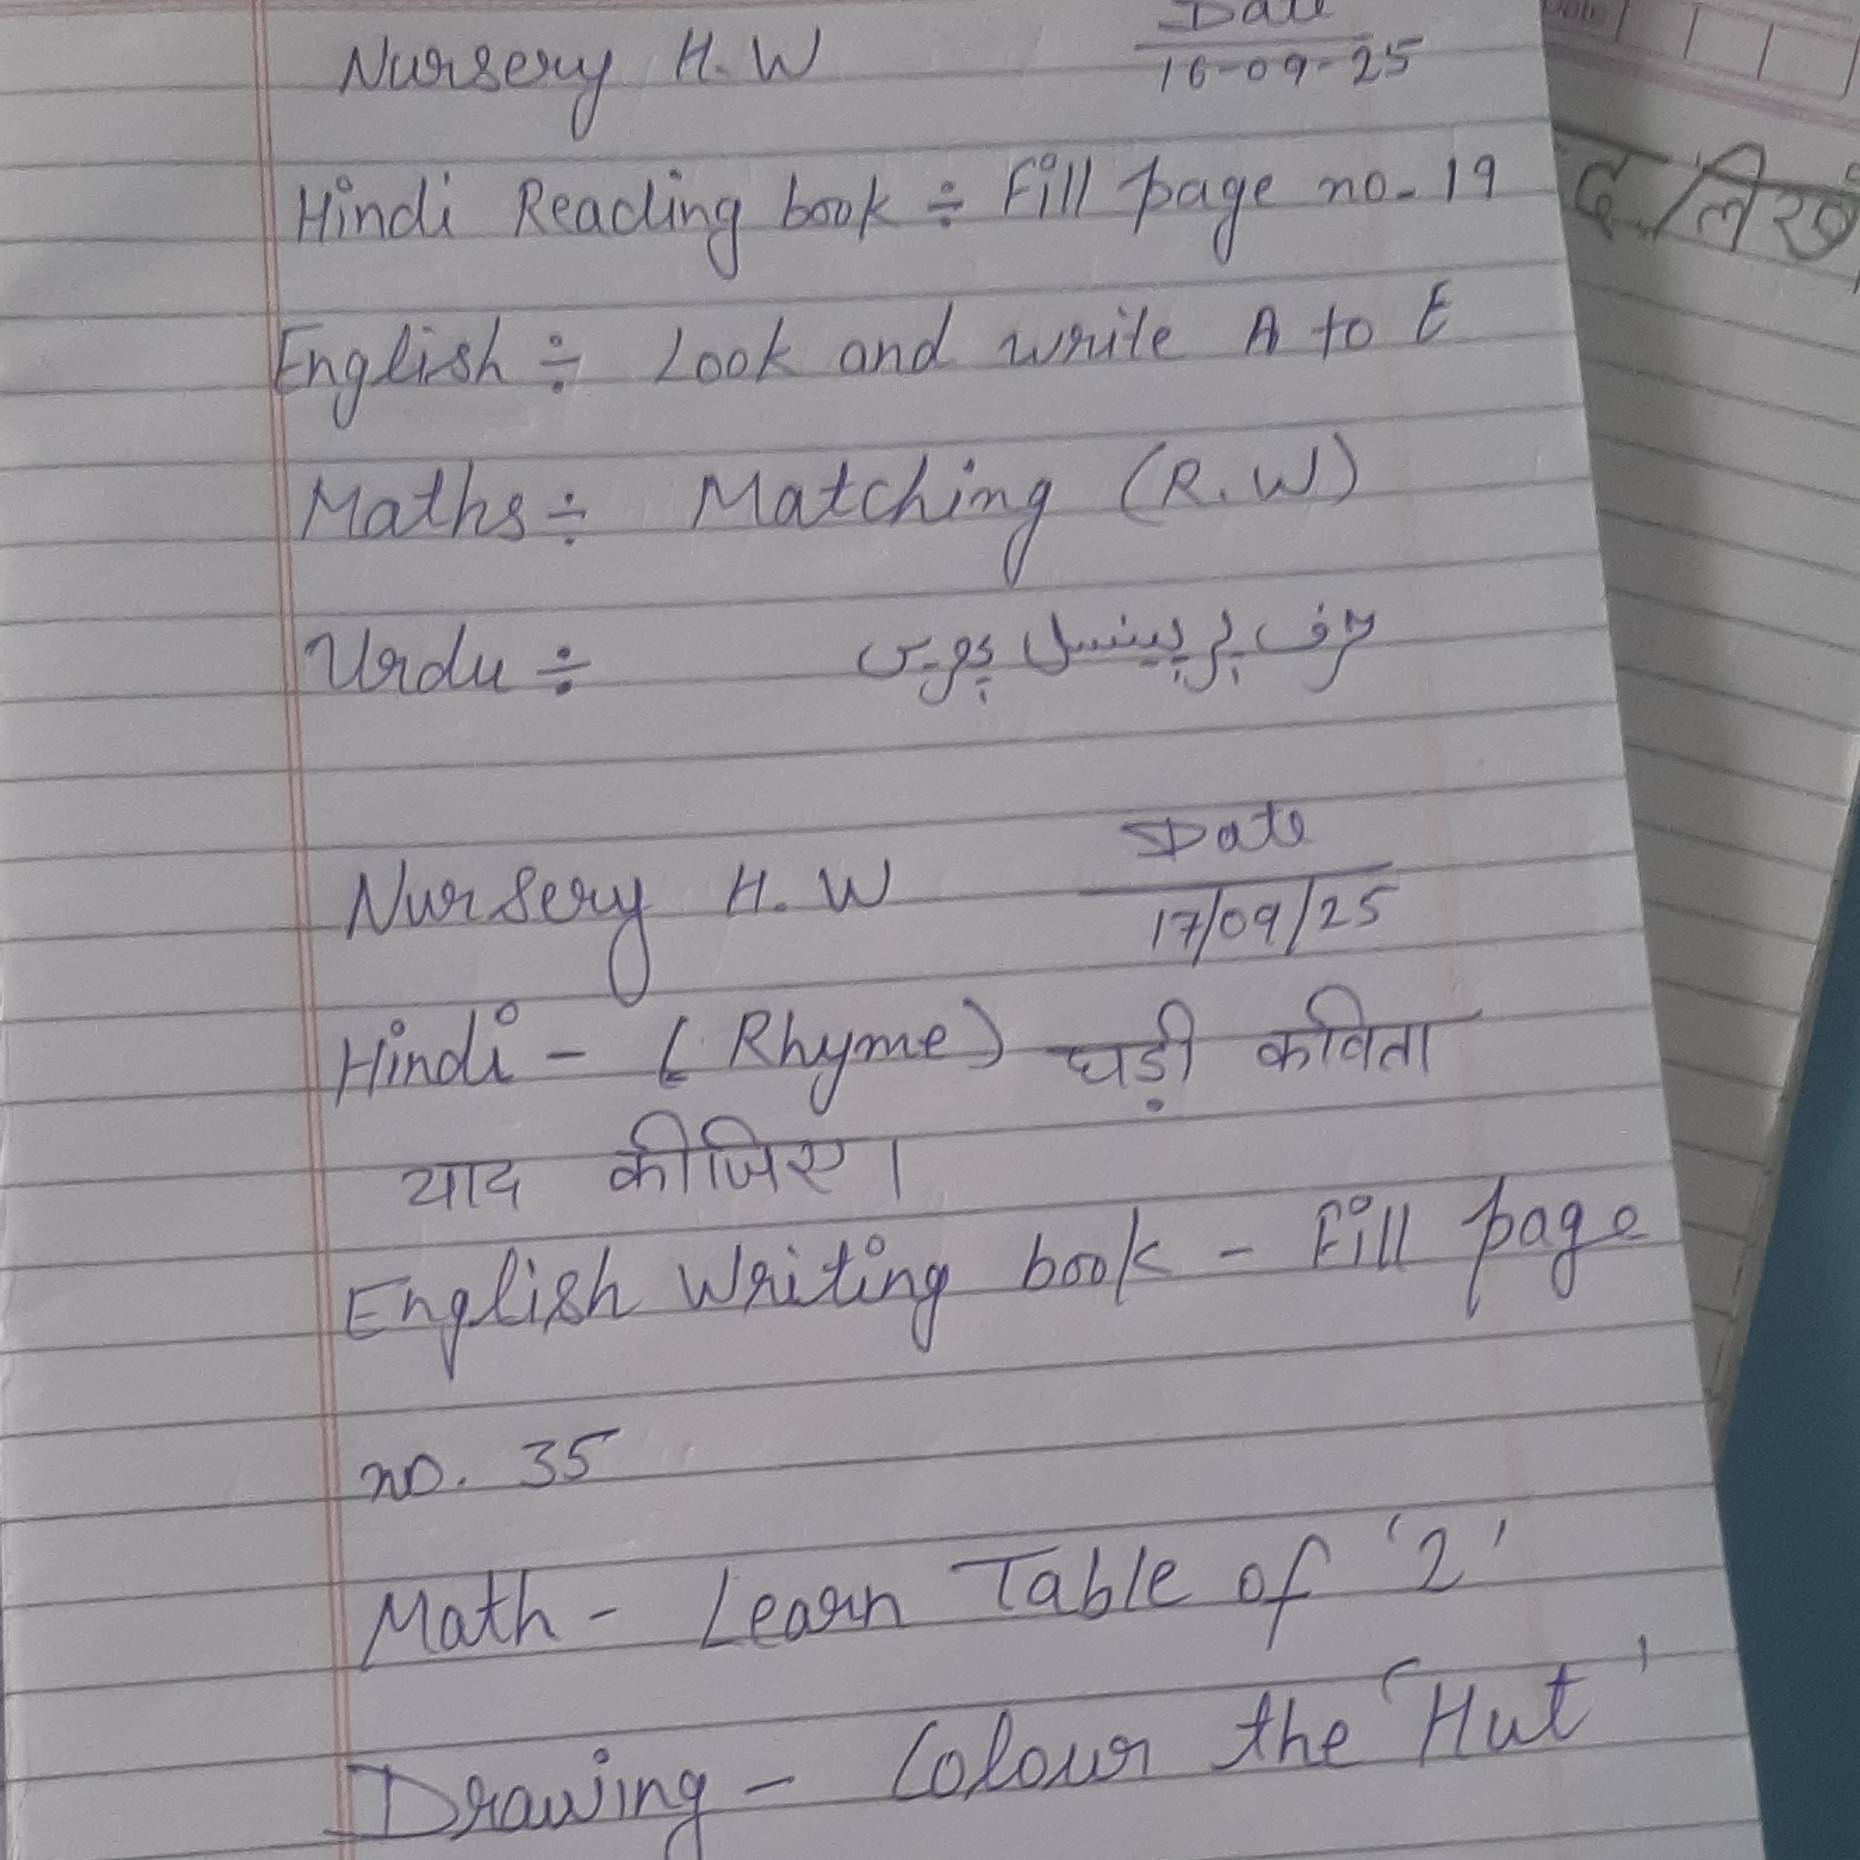 Nursery H.W Date
16-09-25
Hindi Reading book ÷ Fill page no. 19
English ÷ Look and write A to E
Maths ÷ Matching (R.W)
Urdu ÷ حرف پر پینسل پھیریں
Nursery H.W Date
17/09/25
Hindi - (Rhyme) घड़ी कविता
याद कीजिए।
English Writing book - Fill page
no. 35
Math - Learn Table of '2'
Drawing - Colour the 'Hut'